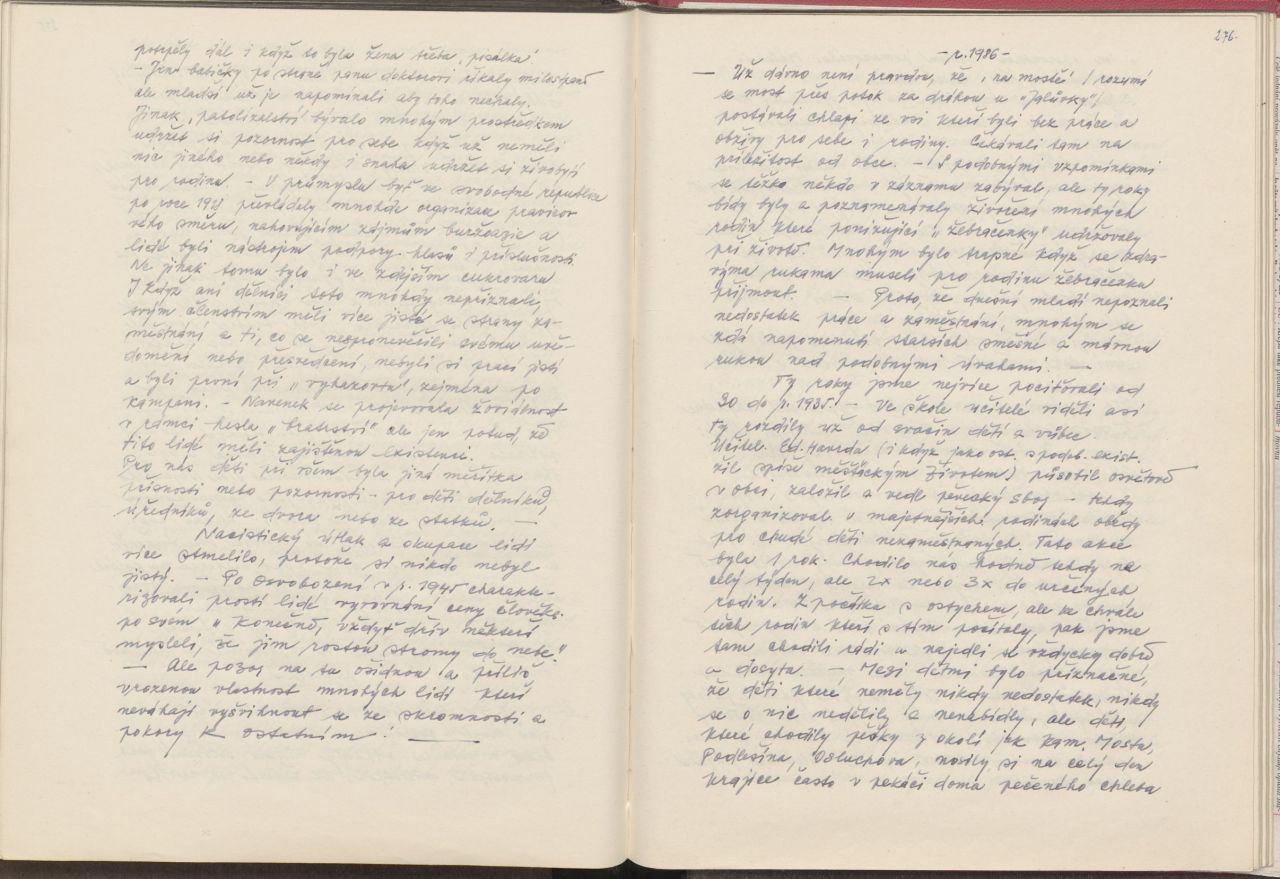 potrpěly dál i když to byla žena třeba "písálka"
- Jen babičky po straně panu doktorovi říkaly milospane
ale mladší už je napomínali aby toho nechaly.
Jinak, patolízalství bývalo mnohým prostředkem
udržet si pozornost pro sebe když už neměli
nic jiného nebo někdy i snaha udržet si živobytí
pro rodinu. - V průmyslu byť ve svobodné republice
po roce 1921 převládaly mnohde organizace pravico-
vého směru, nahovájícím zájmům buržoazie a
lidé byli nástrojem podpory hlasů i příslušnosti.
Ne jinak tomu bylo i ve zdejším cukrovaru
I když ani dělníci toto mnohdy nepřiznali,
svým členstvím měli více jisté se strany za-
městnání a ti, co se nezpronevěřili svému uvě-
domění nebo přesvědčení, nebyli si prací jistí
a byli první při "vyhazovu", zejména po
kampani. - Navenek se projevovala žoviálnost
v rámci hesla "bratrství" ale jen potud, že
tito lidé měli zajištěnou existenci.
Pro nás děti při všem byla jiná měřítka
přísnosti nebo pozornosti - pro děti dělníků,
úředníků, ze dvora nebo ze statků. —
Nacistický útlak a okupace lidi
více stmelilo, protože si nikdo nebyl
jistý. - Po osvobození v r. 1945 charakte-
rizovali prostí lidé vyrovnání ceny člověka
po svém "Konečně, vždyť dřív někteří
mysleli, že jim rostou stromy do nebe."
— Ale pozor na tu ošidnou a příliš
vrozenou vlastnost mnohých lidí kteří
neváhají vyšvihnout se ze skromnosti a
pokory k ostatním! —
276.
- r. 1986 -
— Už dávno není pravdou, že "na mostě" / rozumí
se most přes potok za dráhou u "Jglůvky"/
postávali chlapi ze vsi kteří byli bez práce a
obživy pro sebe i rodiny. Čekávali tam na
příležitost od obce. - S podobnými vzpomínkami
se těžko někdo v záznamu zabýval, ale ty roky
bídy byly a poznamenávaly živoření mnohých
rodin které ponižující "žebračenky" udržovaly
při životě. Mnohým bylo trapné když se zdra-
výma rukama museli pro rodinu žebračenku
přijmout. - Proto, že dnešní mladí nepoznali
nedostatek práce a zaměstnání, mnohým se
zdá napomenutí starších směšné a mávnou
rukou nad podobnými úvahami. —
Ty roky jsme nejvíce pociťovali od
30 do r. 1935. - Ve škole učitelé viděli asi
ty rozdíly už od svačin dětí a vůbec.
Učitel Ed. Haveda (i když jako ost. s podob. exist.
žil spíše měšťáckým životem) působil osvětově
v obci, založil a vedl pěvecký sbor - tehdy
zorganizoval v majetnějších rodinách obědy
pro chudé děti nezaměstnaných. Tato akce
byla 1 rok. Chodilo nás hodně tehdy ne
celý týden, ale 2x nebo 3x do určených
rodin. Zpočátku s ostychem, ale ke chvále
těch rodin kteří s tím počítaly, pak jsme
tam chodili rádi a najedli se vždycky dobře
a dosyta. - Mezi dětmi bylo příznačné,
že děti které neměly nikdy nedostatek, nikdy
se o nic nedělily a nenabídly, ale děti,
které chodily pěšky z okolí jak Kam. Mostu,
Podlešína, Osluchova, nosily si na celý den
krajíce často v pekáči doma pečeného chleba